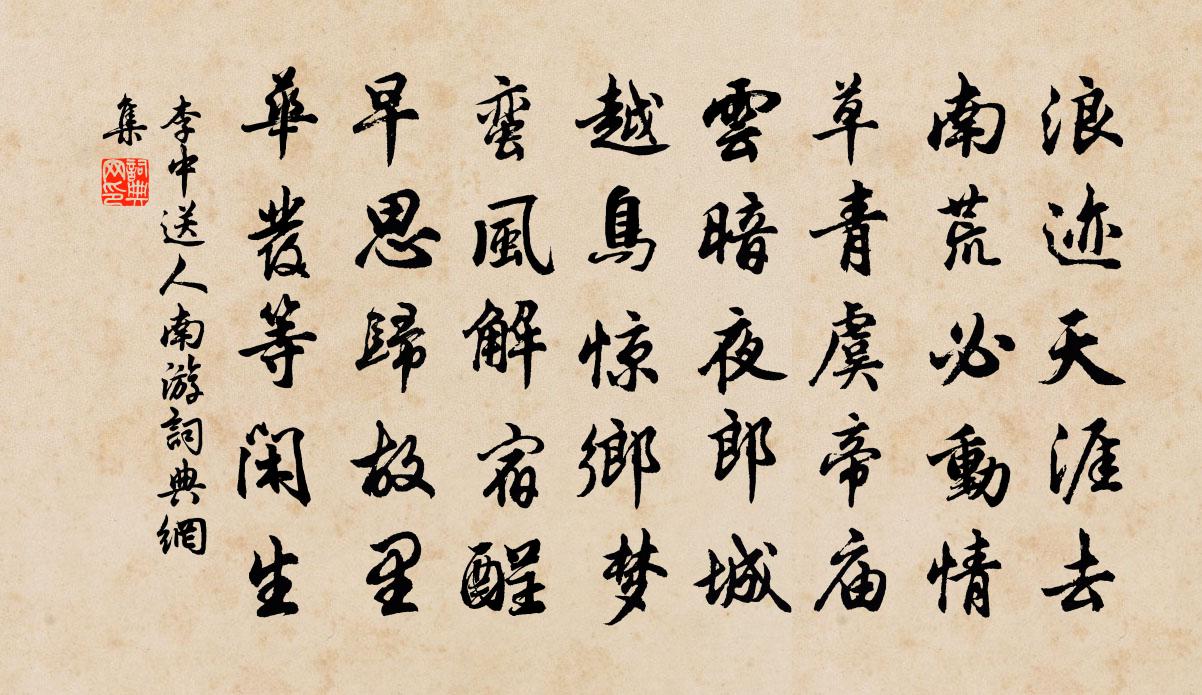 浪迹天涯去
南荒必動情
草青虞帝庙
雲暗夜郎城
越鳥惊鄉梦
蛮風解宿酲
早思歸故里
華發等闲生
李中送人南游詞典網
集
詞典
网印